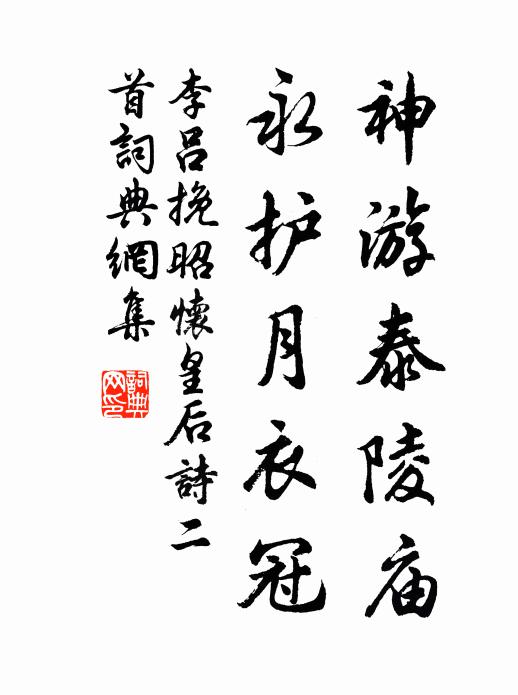 神游泰陵庙
永护月衣冠
李吕挽昭懷皇后詩二
首詞典網集
詞典
网印